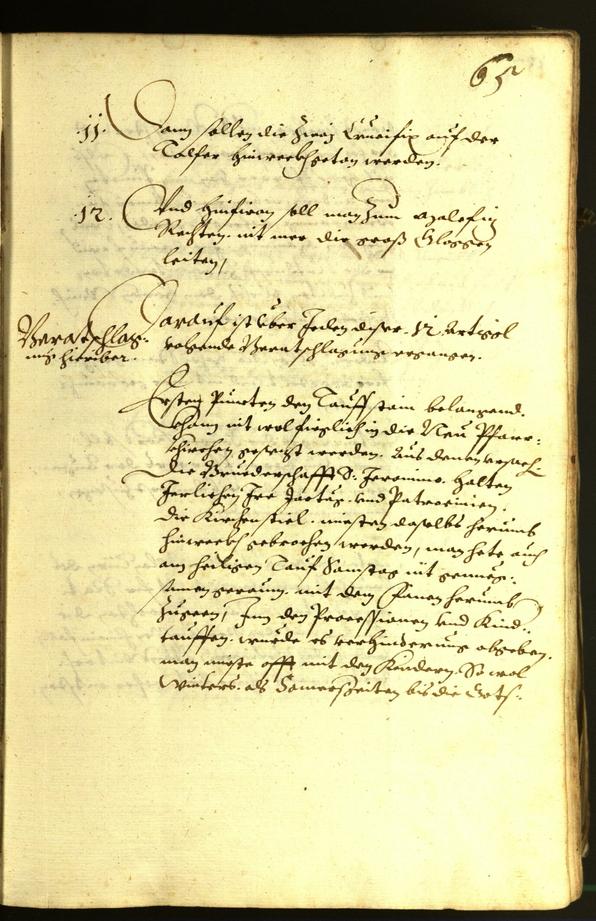 65
.11. Dann sollen die zway Crucifix auf der
Talfer hinweckhgetan werden.
.12. Vnd hinfüran soll man zum Malefiz
Rechten. nit mer die groß Gloggen
leiten,
Darauf ist über Jeden diser .12. Artiggl
volgende Beratschlagung ergangen.
Beratschlag-
ung hierüber.
Ersten Puncten den Taufstain belangend.
khann nit wol füeglich in die Neu Pfarr-
khirchen gesetzt werden. Aus denen ursach.
Die Brüederschafft S: Jeronimo. halten
Jerlichen Ire Jartäg. und Patrocinien.
Die Kirchenstiel. müesten daselbs herumb
hinweckh gebrochen werden, man hete auch
am heiligen Tauf Sambstag nit genueg-
samen geraum. mit dem Fanen herumb
zugeen, In den Processionen und Kind-
tauffen. wurde es verhinderung abgeben.
man müeste offt mit den Kindern. So wol
Winters. als Sommerszeiten bis die Gots-